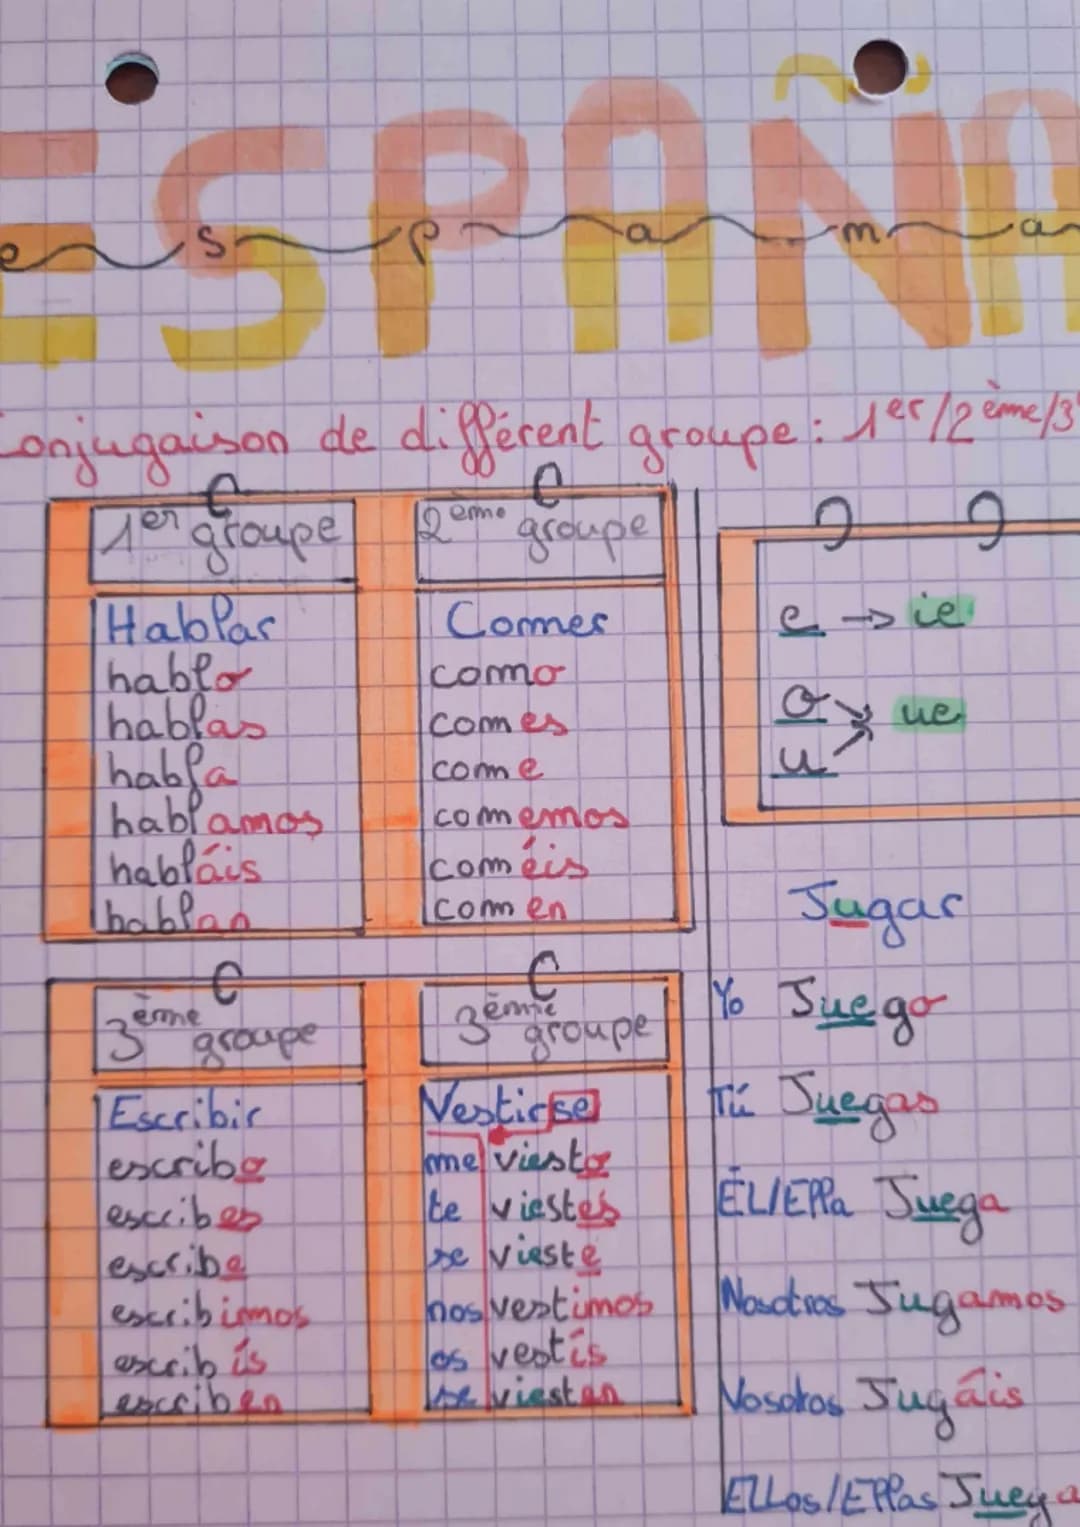 ESPAÑA
e s p a m a
Conjugaison de différent groupe : 1er/2ème/3
1er groupe
Hablar
hablo
hablas
habla
hablamos
habláis
hablan
2ème groupe
Comer
como
comes
come
comemos
coméis
comen
3ème groupe
Escribir
escribo
escribes
escribe
escribimos
escribís
escriben
3ème groupe
Vestirse
me viesto
te viestes
se vieste
nos vestimos
os vestís
se viesten
e → ie
o → ue
u
Jugar
Yo Juego
Tú Juegas
ÉL/Ella Juega
Nosotros Jugamos
Vosotros Jugáis
ELLos/Ellas Juega